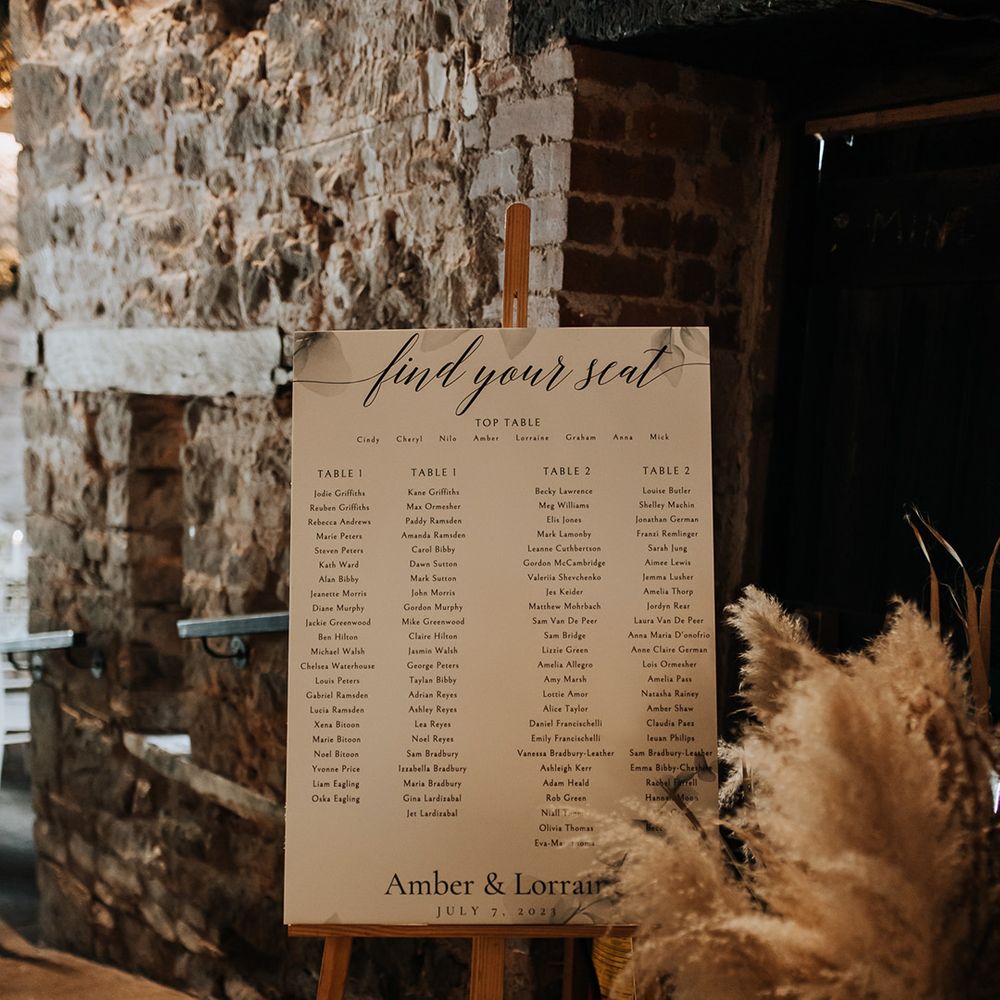 find your seat
TOP TABLE
Cindy Cheryl Nilo Amber Lorraine Graham Anna Mick
TABLE 1
Jodie Griffiths
Reuben Griffiths
Rebecca Andrews
Marie Peters
Steven Peters
Kath Ward
Alan Bibby
Jeanette Morris
Diane Murphy
Jackie Greenwood
Ben Hilton
Michael Walsh
Chelsea Waterhouse
Louis Peters
Gabriel Ramsden
Lucia Ramsden
Xena Bitoon
Marie Bitoon
Noel Bitoon
Yvonne Price
Liam Eagling
Oska Eagling
TABLE 1
Kane Griffiths
Max Ormesher
Paddy Ramsden
Amanda Ramsden
Carol Bibby
Dawn Sutton
Mark Sutton
John Morris
Gordon Murphy
Mike Greenwood
Claire Hilton
Jasmin Walsh
George Peters
Taylan Bibby
Adrian Reyes
Ashley Reyes
Lea Reyes
Noel Reyes
Sam Bradbury
Izzabella Bradbury
Maria Bradbury
Gina Lardizabal
Jet Lardizabal
TABLE 2
Becky Lawrence
Meg Williams
Elis Jones
Mark Lamonby
Leanne Cuthbertson
Gordon McCambridge
Valeriia Shevchenko
Jes Keider
Matthew Mohrbach
Sam Van De Peer
Sam Bridge
Lizzie Green
Amelia Allegro
Amy Marsh
Lottie Amor
Alice Taylor
Daniel Francischelli
Emily Francischelli
Vanessa Bradbury-Leather
Ashleigh Kerr
Adam Heald
Rob Green
Niall
Olivia Thomas
TABLE 2
Louise Butler
Shelley Machin
Jonathan German
Franzi Remlinger
Sarah Jung
Aimee Lewis
Jemma Lusher
Amelia Thorp
Jordyn Rear
Laura Van De Peer
Anna Maria D'onofrio
Anne Claire German
Lois Ormesher
Amelia Pass
Natasha Rainey
Amber Shaw
Claudia Paez
Ieuan Philips
Sam Bradbury-Leather
Emma Bibby-Cheshire
Rachel Farrell
Amber & Lorrain
JULY 7, 2023